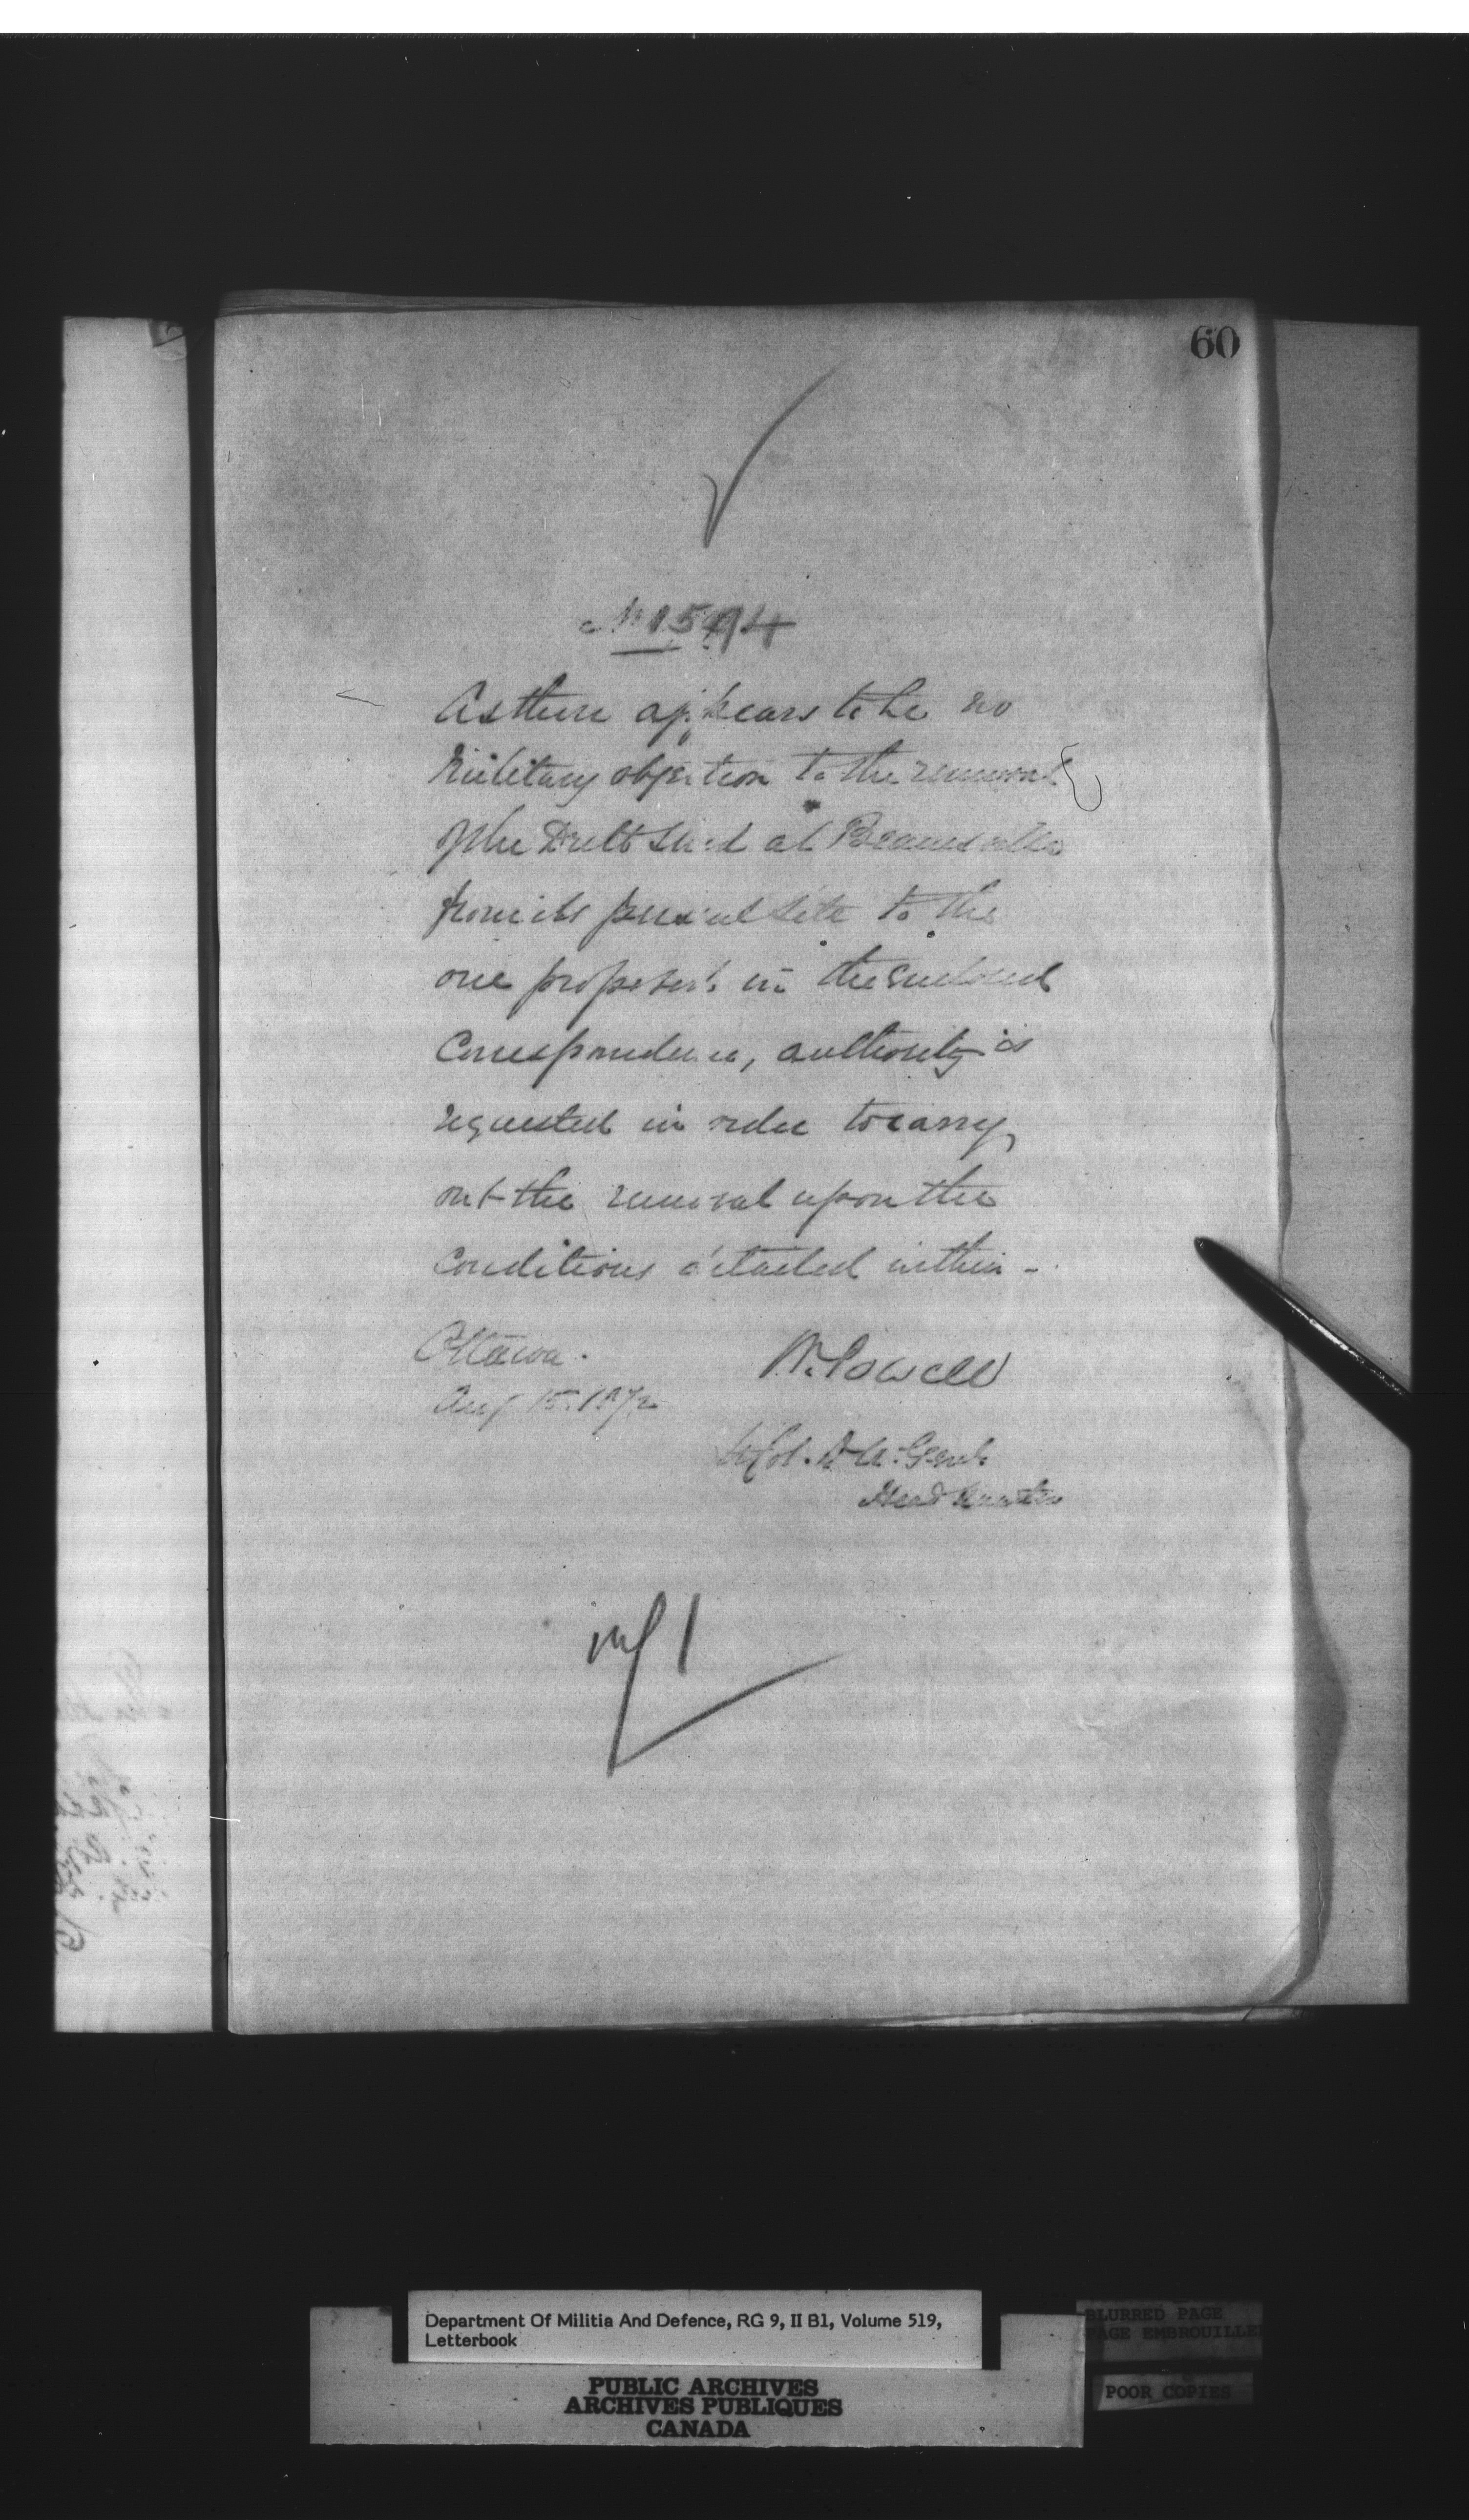 60
No 1594
As there appears to be no
Military objection to the removal
of the Drill Shed at Beamsville
from its present site to the
one proposed in the enclosed
Correspondence, authority is
requested in order to carry
out the removal upon the
Conditions detailed within -
Ottawa.
Aug 15. 1872
W. Powell
Lt Col. D. A. Genl.
Head Quarters
Department Of Militia And Defence, RG 9, II B1, Volume 519,
Letterbook
PUBLIC ARCHIVES
ARCHIVES PUBLIQUES
CANADA
BLURRED PAGE
PAGE EMBROUILLE
POOR COPIES